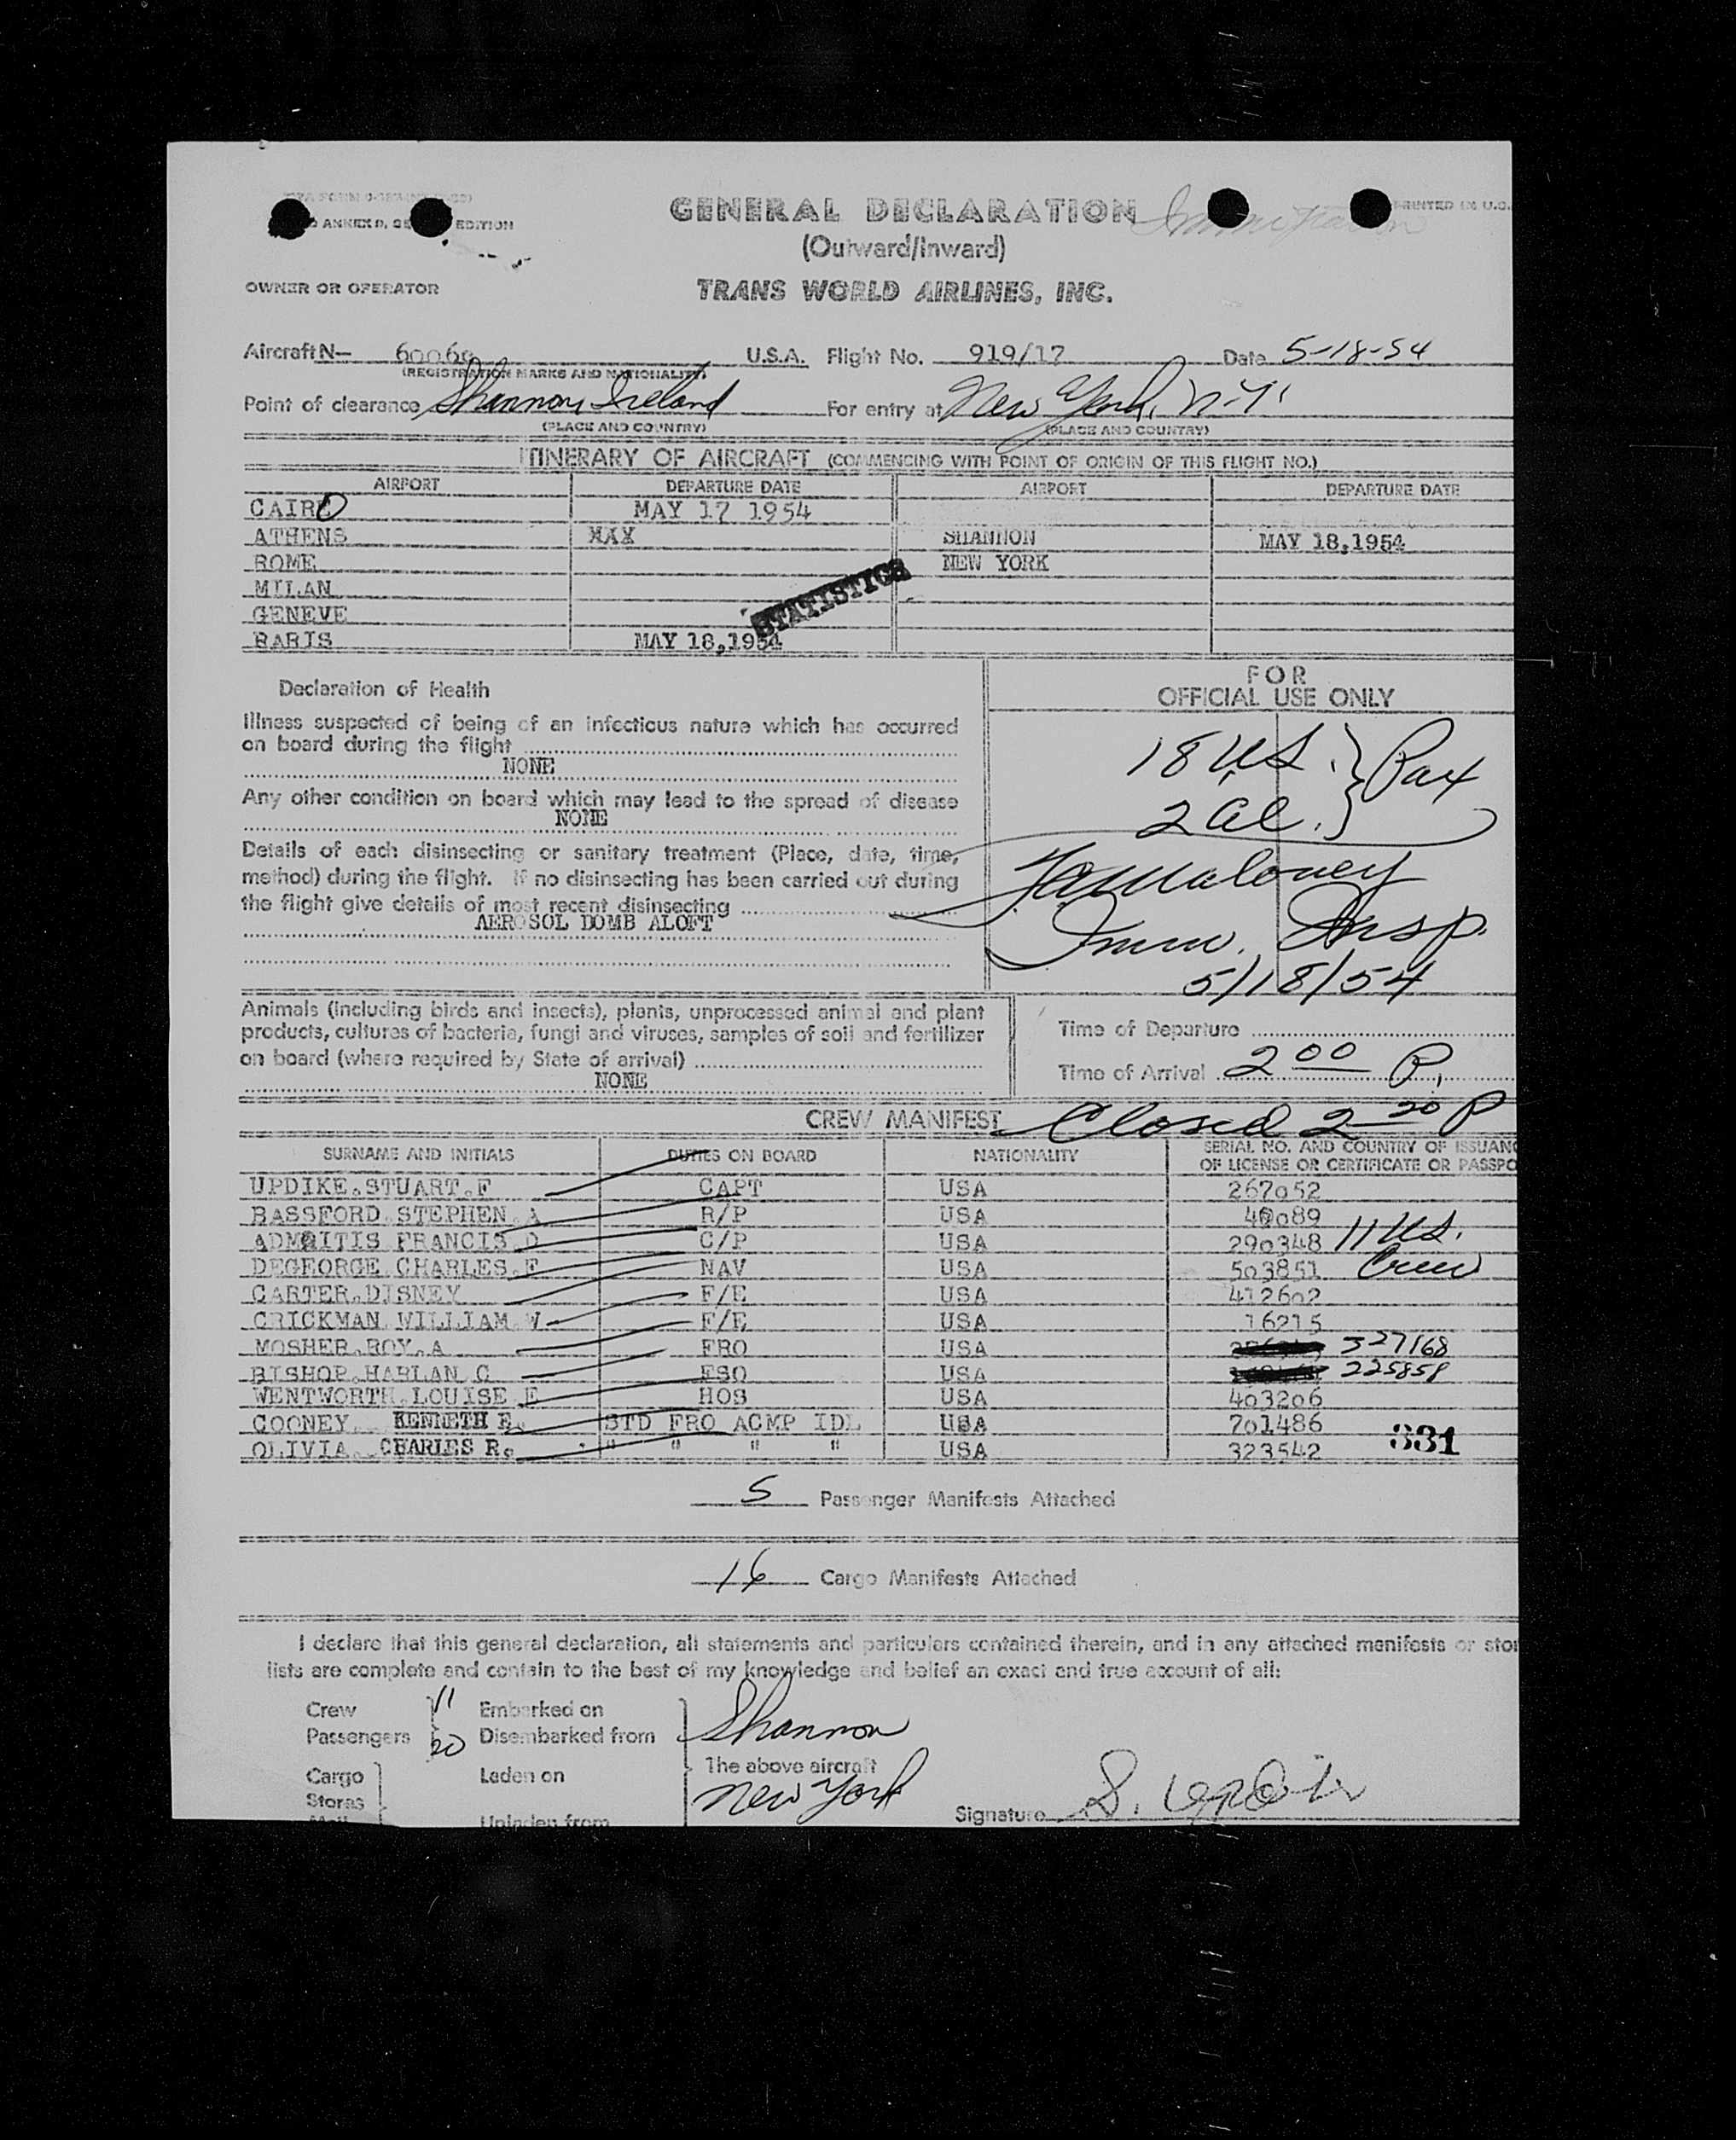 GENERAL DECLARATION
PRINTED IN U.S.
ANNEX D, EDITION
(Outward/Inward)
OWNER OR OPERATOR TRANS WORLD AIRLINES, INC.
Aircraft N— 6006 U.S.A. Flight No. 919/17 Date 5-18-54
(REGISTRATION MARKS AND NATIONALITY)
Point of clearance Shannon, Ireland For entry at New York, N.Y.
(PLACE AND COUNTRY) (PLACE AND COUNTRY)
ITINERARY OF AIRCRAFT (COMMENCING WITH POINT OF ORIGIN OF THIS FLIGHT NO.)
AIRPORT DEPARTURE DATE AIRPORT DEPARTURE DATE
CAIRO MAY 17 1954
ATHENS MAX SHANNON MAY 18,1954
ROME NEW YORK
MILAN
GENEVE
STATISTICS
PARIS MAY 18,1954
Declaration of Health
Illness suspected of being of an infectious nature which has occurred
on board during the flight
NONE
Any other condition on board which may lead to the spread of disease
NONE
Details of each disinsecting or sanitary treatment (Place, date, time,
method) during the flight. If no disinsecting has been carried out during
the flight give details of most recent disinsecting
AEROSOL BOMB ALOFT
FOR
OFFICIAL USE ONLY
18 US. } Pax
2 al.
Maloney
Imm. Insp.
5/18/54
Animals (including birds and insects), plants, unprocessed animal and plant
products, cultures of bacteria, fungi and viruses, samples of soil and fertilizer
on board (where required by State of arrival)
NONE
Time of Departure
Time of Arrival 2 00 P.
CREW MANIFEST Closed 2 20 P
SURNAME AND INITIALS DUTIES ON BOARD NATIONALITY SERIAL NO. AND COUNTRY OF ISSUANC
OF LICENSE OR CERTIFICATE OR PASSPO
UPDIKE.STUART.F CAPT USA 267052
BASSFORD.STEPHEN.A R/P USA 40089
ADMAITIS FRANCIS.D C/P USA 290348 11 US.
DEGEORGE CHARLES.F NAV USA 503851 Crew
CARTER.DISNEY F/E USA 412602
CRICKMAN WILLIAM W F/E USA 16215
MOSHER.ROY.A FRO USA 327168
BISHOP.HARLAN C FSO USA 225858
WENTWORTH.LOUISE E HOS USA 403206
COONEY. KENNETH E. STD FRO ACMP IDL USA 701486
OLIVIA. CHARLES R. " " " " USA 323542
331
5 Passenger Manifests Attached
16 Cargo Manifests Attached
I declare that this general declaration, all statements and particulars contained therein, and in any attached manifests or stor
lists are complete and contain to the best of my knowledge and belief an exact and true account of all:
Crew 11 Embarked on
Passengers 20 Disembarked from Shannon
The above aircraft
Cargo Laden on New York
Stores
Mail Unladen from
Signature